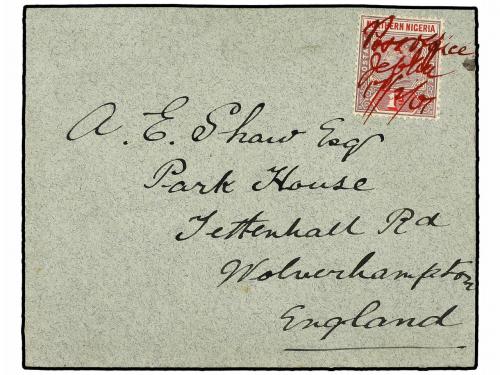 THERN NIGERIA
Post Office
Jebba
1d
A. E. Shaw Esq
Park House
Tettenhall Rd
Wolverhampton
England